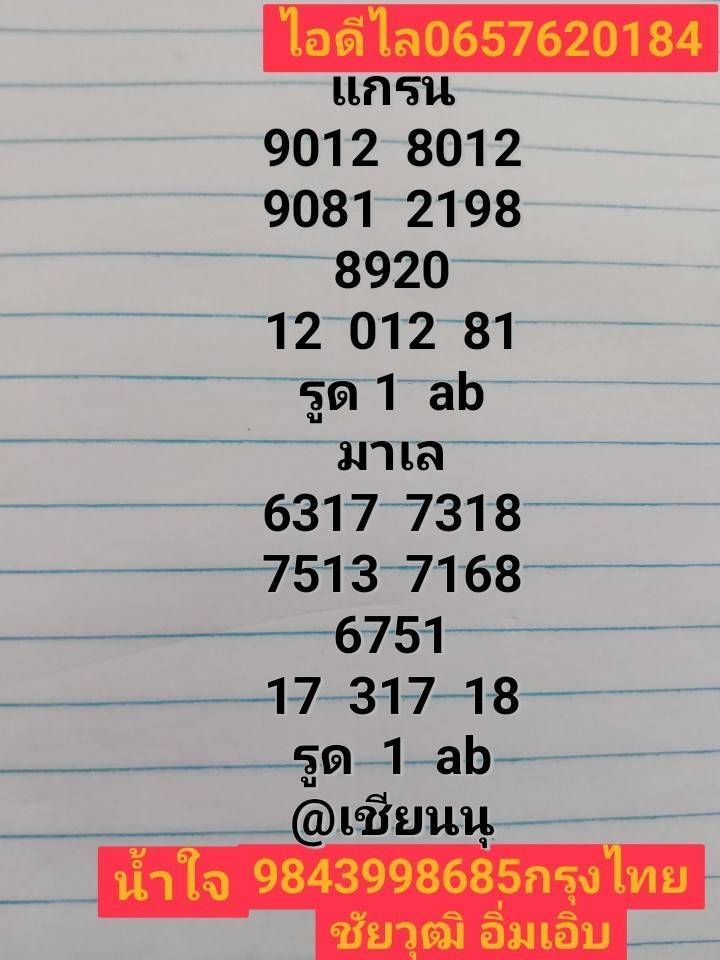 ไอดีไล0657620184
แกรน
9012 8012
9081 2198
8920
12 012 81
รูด 1 ab
มาเล
6317 7318
7513 7168
6751
17 317 18
รูด 1 ab
@เซียนนุ
น้ำใจ 9843998685กรุงไทย
ชัยวุฒิ อิ่มเอิบ